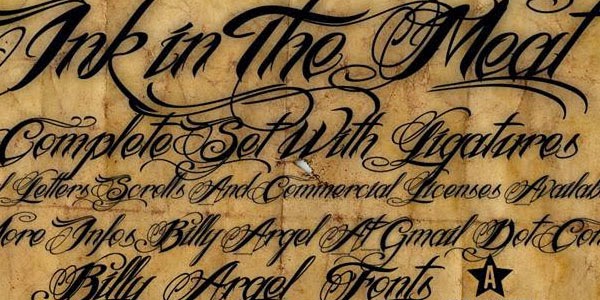 Ink in The Meat
Complete Set With Ligatures
l Letters Scrolls And Commercial Licenses Availab
More Infos Billy Argel At Gmail Dot Com
Billy Argel Fonts
A